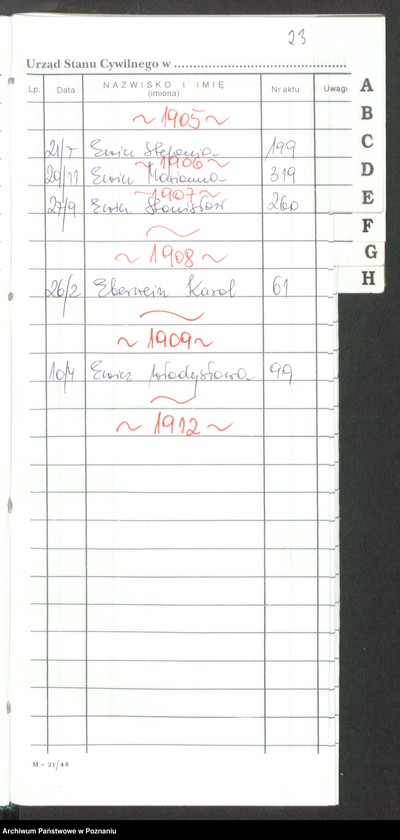 23
Urząd Stanu Cywilnego w
Lp. Data NAZWISKO I IMIĘ (imiona) Nr aktu Uwagi
~ 1905 ~
21/7 Ewicz Stefania 199
~ 1906 ~
29/11 Ewicz Marianna 319
~ 1907 ~
27/9 Ewicz Stanisław 260
~ 1908 ~
26/2 Eberwein Karol 61
~ 1909 ~
10/4 Ewicz Władysława 99
~ 1912 ~
A
B
C
D
E
F
G
H
M – 21/48
Archiwum Państwowe w Poznaniu